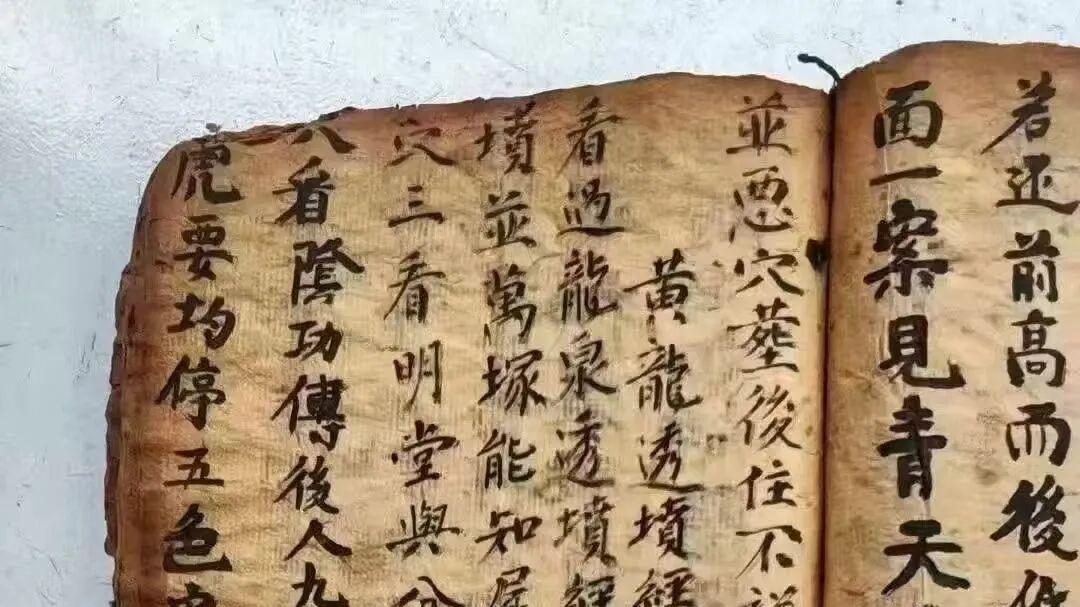 若还前高而後
面一案見青天
並惡穴塟後住不
黄龍透墳經
看過龍泉透墳經
墳並萬塚能知
穴三看明堂與
八看陰功傳後人九
虎要均停五色